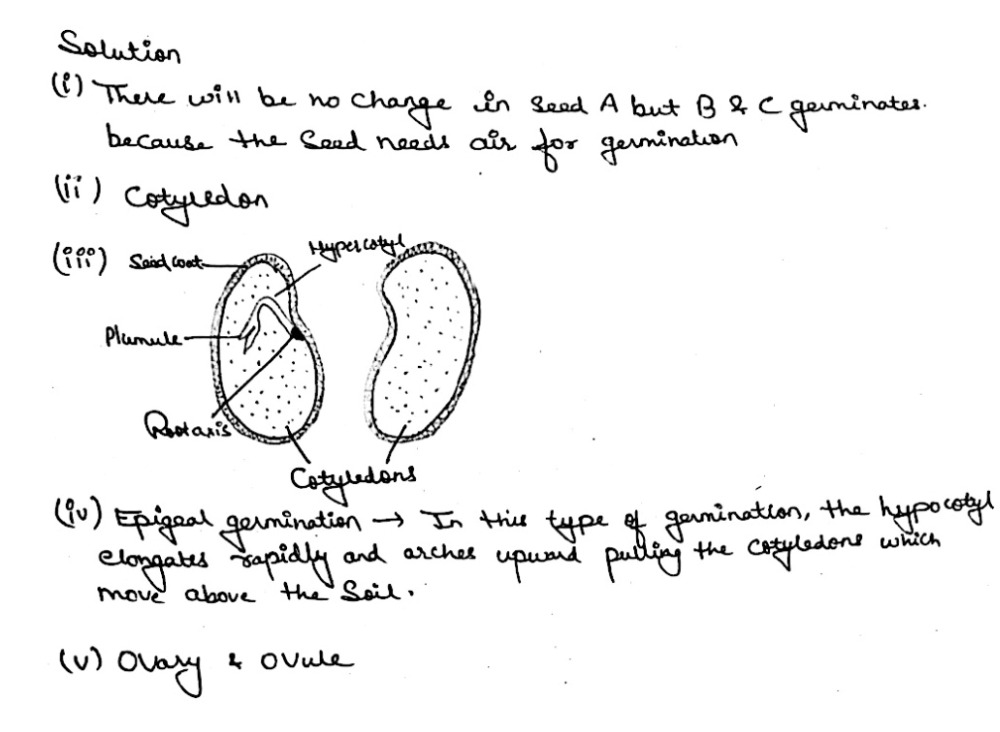 Solution
(i) There will be no change in Seed A but B & C germinates.
because the Seed needs air for germination
(ii) Cotyledon
(iii) Seed coat
Hypercotyl
Plumule
Root axis
Cotyledons
(iv) Epigeal germination → In this type of germination, the hypocotyl
elongates rapidly and arches upward pulling the cotyledons which
move above the Soil.
(v) Ovary & Ovule